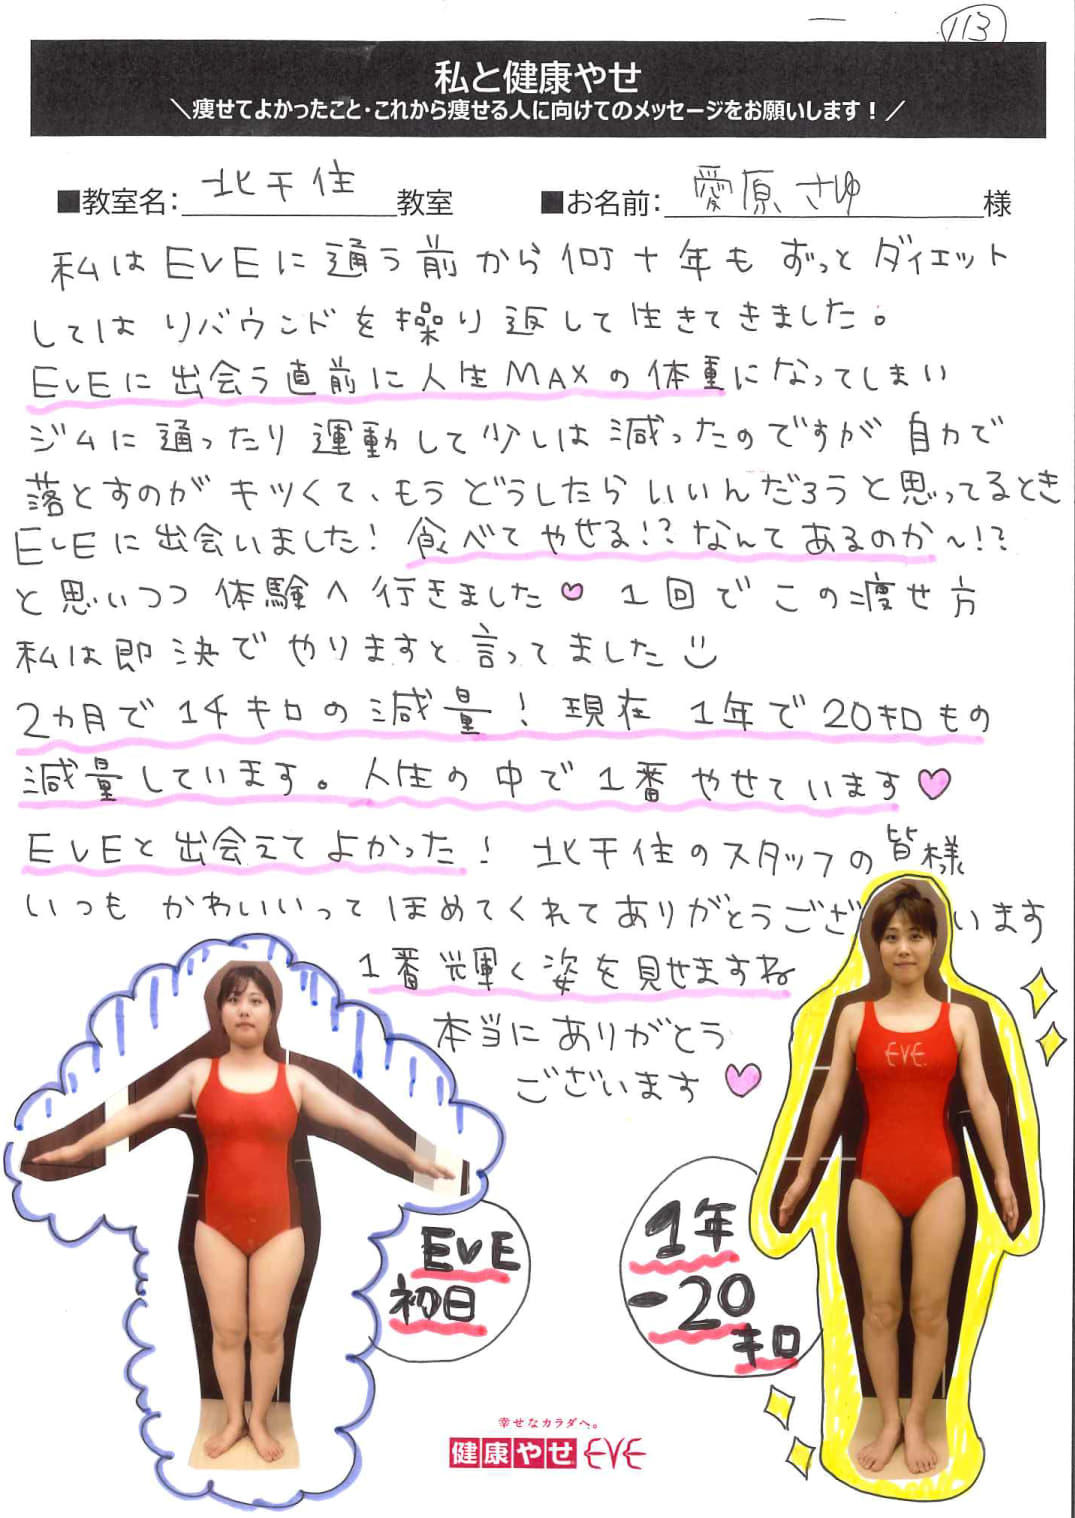 113
私と健康やせ
＼痩せてよかったこと・これから痩せる人に向けてのメッセージをお願いします！／
■教室名：北千住教室 ■お名前：愛原さゆ様
私はEVEに通う前から何十年もずっとダイエット
してはリバウンドを繰り返して生きてきました。
EVEに出会う直前に人生MAXの体重になってしまい
ジムに通ったり運動して少しは減ったのですが自力で
落とすのがキツくて、もうどうしたらいいんだろうと思ってるとき
EVEに出会いました！食べてやせる!?なんてあるのか〜!?
と思いつつ体験へ行きました♡１回でこの痩せ方
私は即決でやりますと言ってました
2ヵ月で14キロの減量！現在1年で20キロもの
減量しています。人生の中で1番やせています♡
EVEと出会えてよかった！北千住のスタッフの皆様
いつもかわいいってほめてくれてありがとうございます
1番輝く姿を見せますね
本当にありがとう
ございます♡
EVE
初日
1年
-20
キロ
幸せなカラダへ。
健康やせEVE
EVE